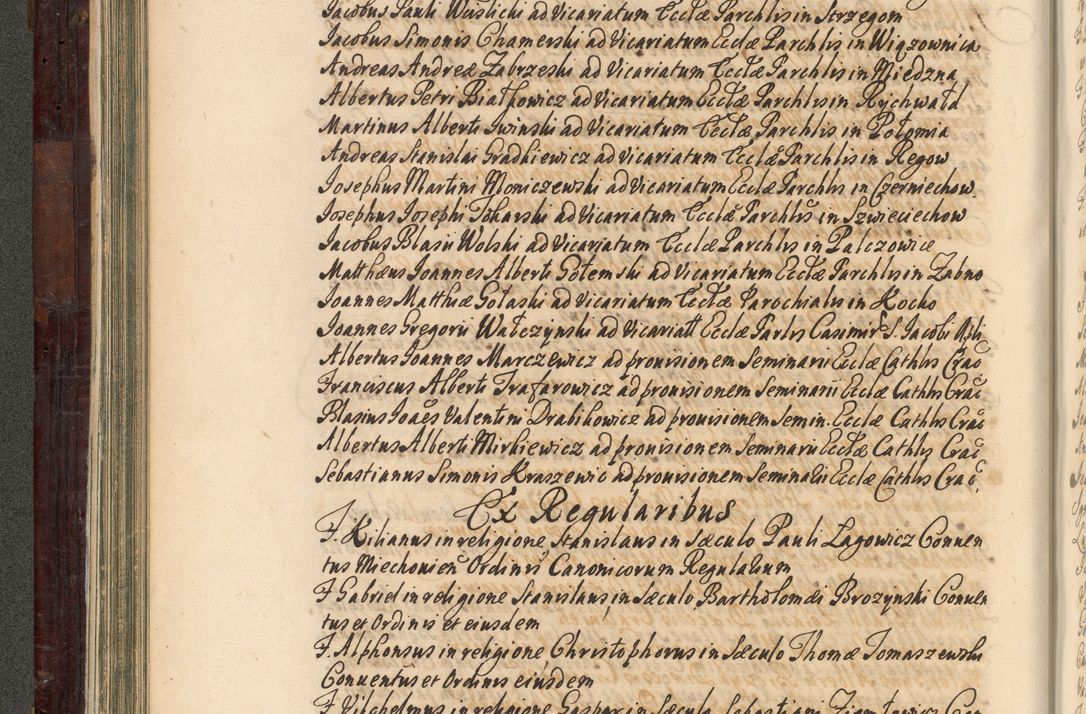 Jacobus Pauli Wuslicki ad Vicariatum Ecclæ Parchlis in Strzegom
Jacobus Simonis Chamerski ad Vicariatum Ecclæ Parchlis in Wiązownica
Andreas Andreæ Zabrzeski ad Vicariatum Ecclæ Parchlis in Miedzna
Albertus Petri Białkowicz ad Vicariatum Ecclæ Parchlis in Rychwałd
Martinus Alberti Iwinski ad Vicariatum Ecclæ Parchlis in Połomia
Andreas Stanislai Gradkiewicz ad Vicariatum Ecclæ Parchlis in Regow
Josephus Martini Moniczewski ad Vicariatum Ecclæ Parchlis in Czerniechow
Josephus Josephi Tokarski ad Vicariatum Ecclæ Parchlis in Szwieciechow
Jacobus Blasii Wolski ad Vicariatum Ecclæ Parchlis in Palczowice
Matthæus Joannes Alberti Gołemski ad Vicariatum Ecclæ Parchlis in Zabno
Joannes Matthiæ Gołaski ad Vicariatum Ecclæ Parochialis in Kocko
Joannes Gregorii Wałczynski ad Vicariatt Ecclæ Parlis Casimir S. Jacobi Apli
Albertus Joannes Marczewicz ad prouisionem Seminarii Ecclæ Cathlis Crac
Franciscus Alberti Trafarowicz ad prouisionem Seminarii Ecclæ Cathlis Crac
Blasius Joães Valentini Drabikowicz ad prouisionem Semin. Ecclæ Cathlis Crac
Albertus Alberti Mirkiewicz ad prouisionem Seminarii Ecclæ Cathlis Crac
Sebastianus Simonis Kraszewic ad prouisionem Seminarii Ecclæ Cathlis Crac.
Ex Regularibus
F. Kilianus in religione Stanislaus in sæculo Pauli Lagowicz Conuen
tus Miechouien Ordinis Canonicorum Regularium
F Gabriel in religione Stanislaus in sæculo Bartholomæi Brozynski Conuen
tus et Ordinis et eiusdem
F. Alphonsus in religione Christophorus in sæculo Thomæ Tomaszewski
Conuentus et Ordinis eiusdem
F Vilchelmus in religione Gaspar in sæculo Sebastiani